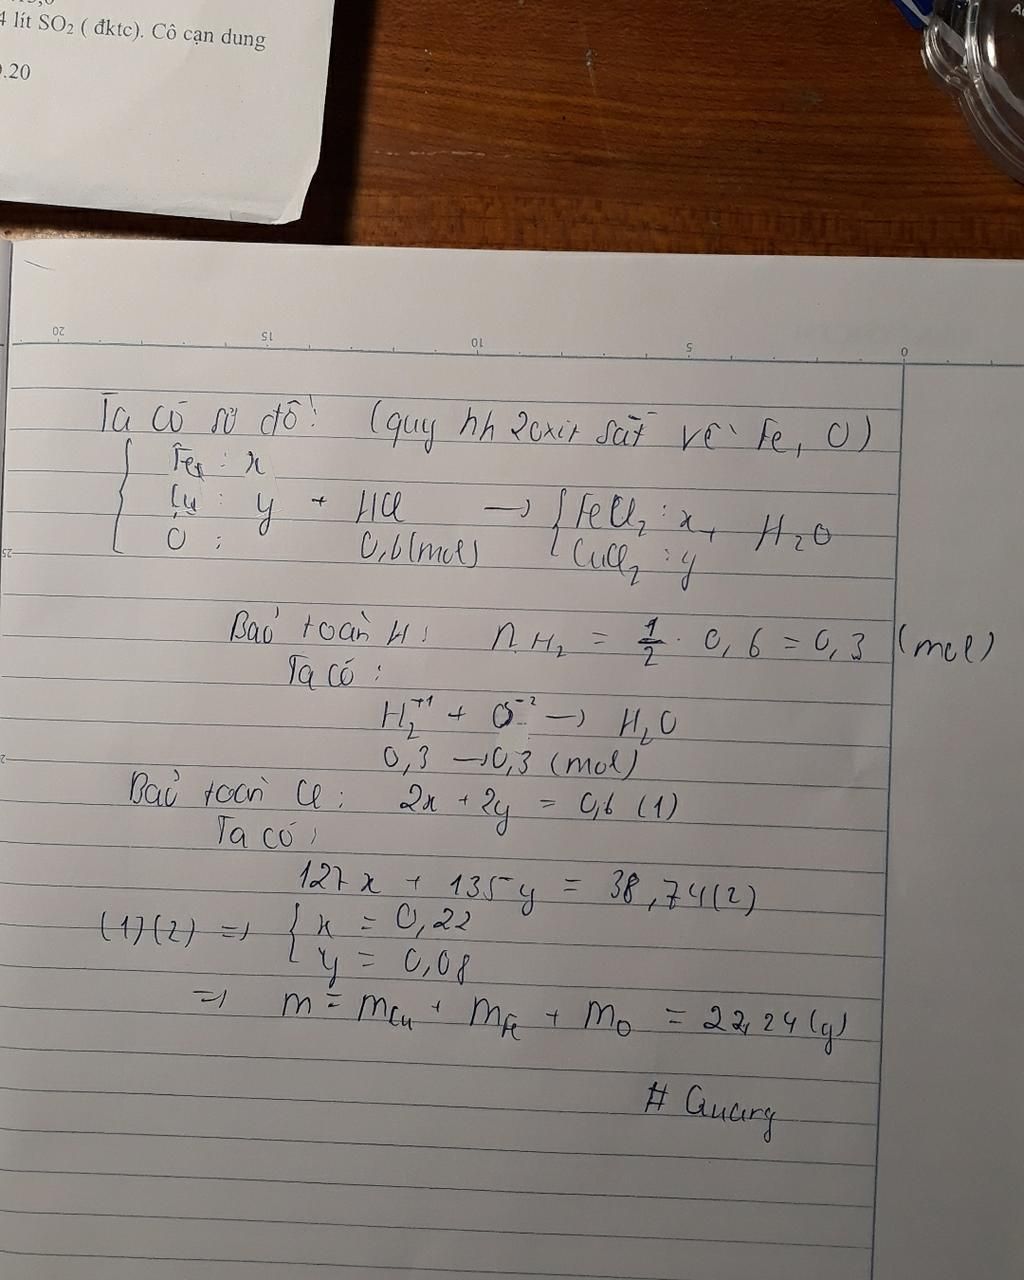 4 lít SO₂ ( đktc). Cô cạn dung
.20
20 15 10 5 0
Ta có sơ đồ: (quy hh 2 oxit sắt về Fe, O)
Fe : x
Cu : y + HCl → { FeCl₂ : x , H₂O
O : 0,6 (mol) CuCl₂ : y
25
Bảo toàn H: n H₂ = 1/2 . 0,6 = 0,3 (mol)
Ta có :
H₂⁺¹ + O⁻² → H₂O
0,3 → 0,3 (mol)
Bảo toàn Cl: 2x + 2y = 0,6 (1)
Ta có:
127x + 135y = 38,74 (2)
(1)(2) => { x = 0,22
y = 0,08
=> m = mCu + mFe + mO = 22,24 (g)
# Quang